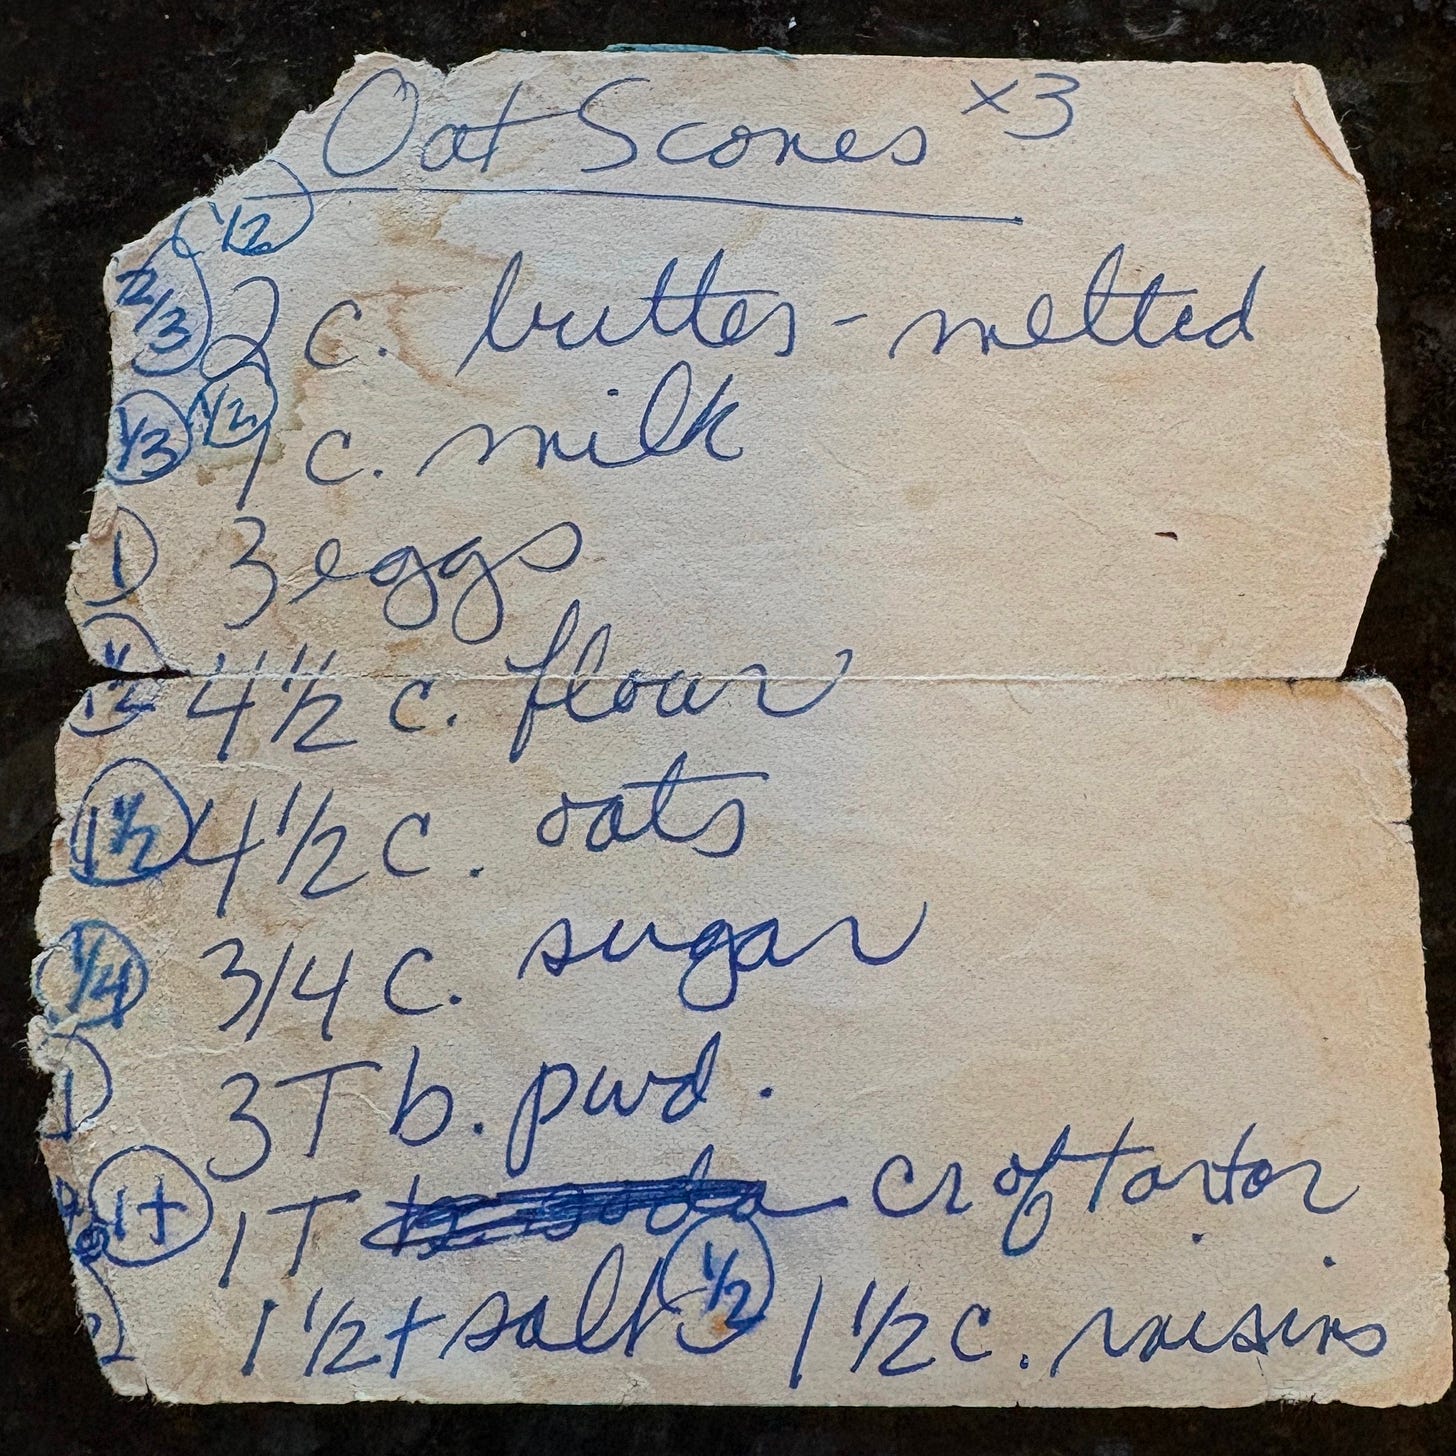 Oat Scones x3
1/2
2/3 2 c. butter - melted
1/3 1/2 1 c. milk
1 3 eggs
1 1/2 4 1/2 c. flour
1 1/2 4 1/2 c. oats
1/4 3/4 c. sugar
1 3 T b. pwd.
1t 1 T b. soda cr of tartar
1 1/2 t salt 1/2 1 1/2 c. raisins